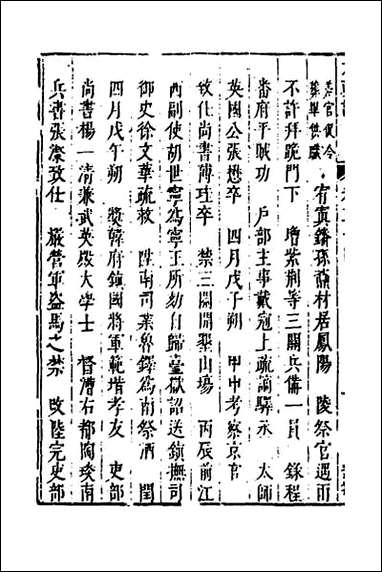 宥寘鐇孫鼐材居鳳陽　陵祭官遇雨
不許拜跪門下　增紫荆等三關兵備一員　錄程
番府平賊功　戶部主事戴冠上疏謫驛丞　太師
英國公張懋卒　四月戊子朔　甲申考察京官
致仕尚書傅珪卒　禁三關開墾山場　丙辰前江
西副使胡世寧爲寧王所劾自歸臺獄詔送鎮撫司
御史徐文華疏救　陞南司業魯鐸爲南祭酒　閏
四月戊午朔　奬韓府鎮國將軍範堦孝友　吏部
尚書楊一清兼武英殿大學士　督漕右都陶琰南
兵書張澯致仕　嚴營軍盜馬之禁　改陸完吏部